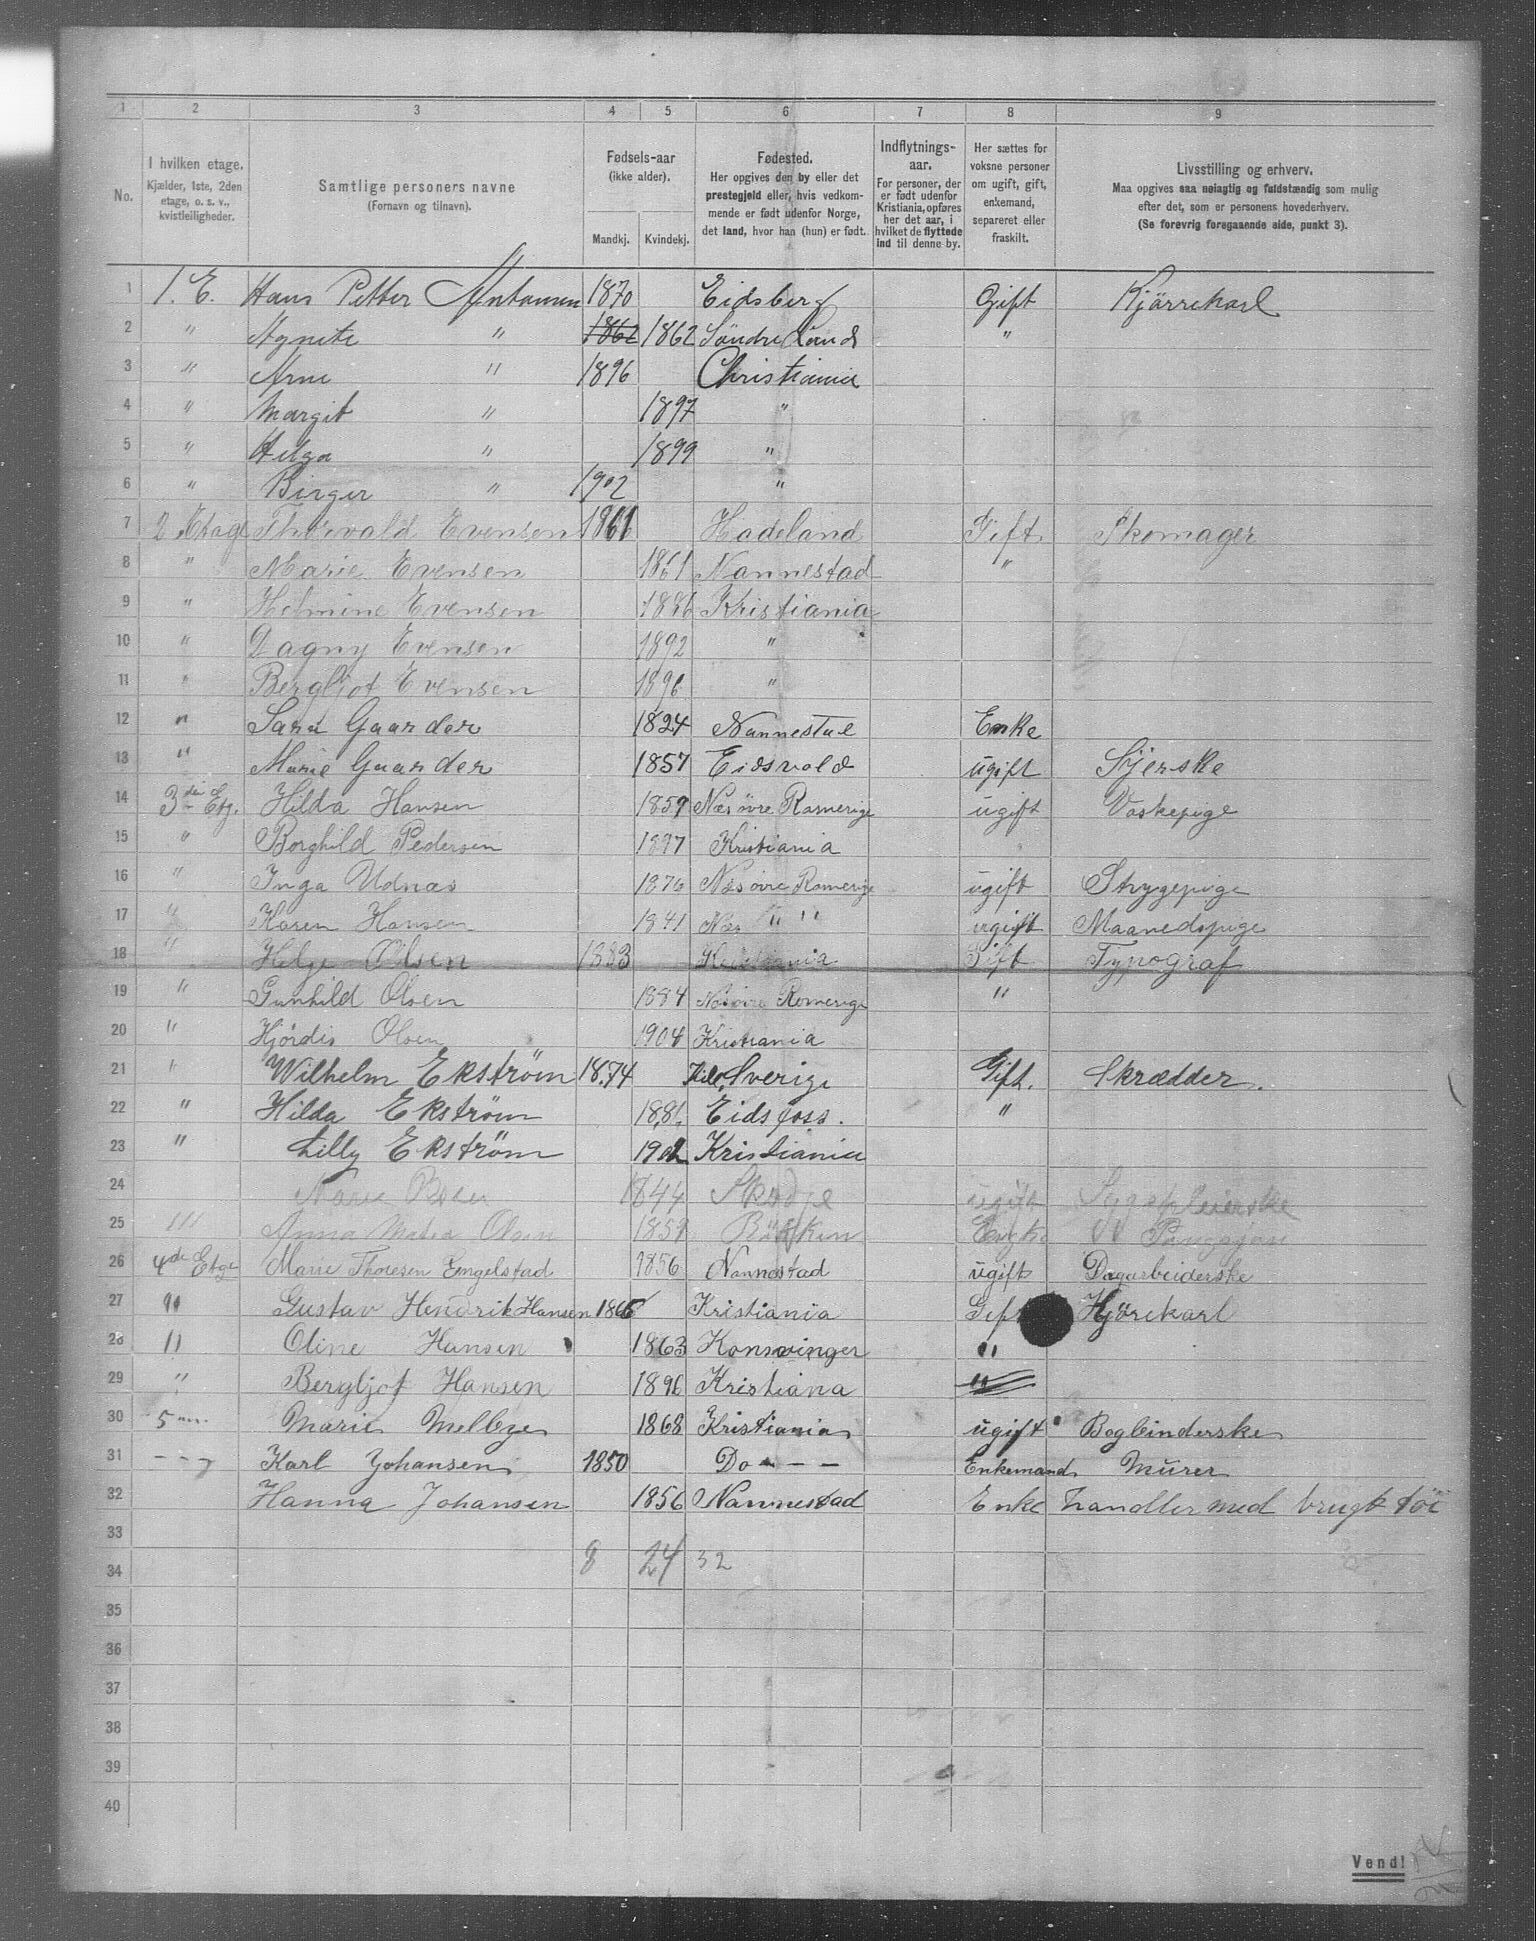 1 2 3 4 5 6 7 8 9
No. | I hvilken etage. Kjælder, 1ste, 2den etage, o. s. v., kvistleiligheder. | Samtlige personers navne (Fornavn og tilnavn). | Fødsels-aar (ikke alder). Mandkj. | Kvindekj. | Fødested. Her opgives den by eller det prestegjeld eller, hvis vedkommende er født udenfor Norge, det land, hvor han (hun) er født. | Indflytnings-aar. For personer, der er født udenfor Kristiania, opføres her det aar, i hvilket de flyttede ind til denne by. | Her sættes for voksne personer om ugift, gift, enkemand, separeret eller fraskilt. | Livsstilling og erhverv. Maa opgives saa nøiagtig og fuldstændig som mulig efter det, som er personens hovederhverv. (Se forøvrig foregaaende side, punkt 3).
1 1. E. Hans Petter 1870 Eidsberg Gift Kjørrekarl
2 " Agnete " 1862 1862 Søndre Land "
3 " Arne " 1896 Christiania
4 " Margit " 1897 "
5 " Helga " 1899 "
6 " Birger " 1902 "
7 2 Etage Thorvald Evensen 1861 Hadeland Gift Skomager
8 " Marie Evensen 1861 Nannestad "
9 " Helmine Evensen 1886 Kristiania
10 " Dagny Evensen 1892 "
11 " Bergljot Evensen 1896 "
12 " Sara Gaarder 1824 Nannestad Enke
13 " Marie Gaarder 1857 Eidsvold ugift Syerske
14 3die Etg. Hilda Hansen 1859 Næs øvre Romerige ugift Vaskepige
15 " Borghild Pedersen 1897 Kristiania
16 " Inga Udnæs 1876 Næs øvre Romerige ugift Strygepige
17 " Karen Hansen 1841 Næs " " ugift Maanedspige
18 " Helge Olsen 1883 Kristiania Gift Typograf
19 " Gunhild Olsen 1884 Næs øvre Romerige "
20 " Hjørdis Olsen 1904 Kristiania
21 " Wilhelm Ekstrøm 1874 Sverige Gift. Skrædder.
22 " Hilda Ekstrøm 1881 Eidsfoss. "
23 " Lilly Ekstrøm 1902 Kristiania
24 Marie 1844 ugift Sygepleierske
25 " Anna Olsen 1859
26 4de Etge Marie Thoresen Engelstad 1856 Nannestad ugift Dagarbeiderske
27 " Gustav Hendrik Hansen 1865 Kristiania Gift Kjørekarl
28 " Oline Hansen 1863 Konsvinger "
29 " Bergljot Hansen 1896 Kristiana "
30 5 Marie Melbye 1868 Kristiania ugift Bogbinderske
31 - - Karl Johansen 1850 Do - - - Enkemand Murer
32 Hanna Johansen 1856 Nannestad Enke handler med brugt tøi
33
34 8 24 32
35
36
37
38
39
40
Vend!